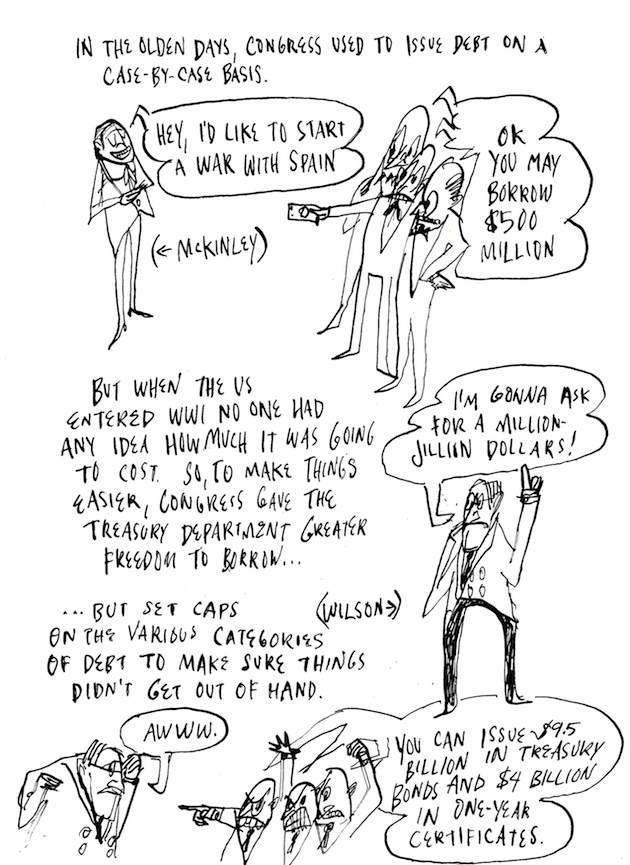 IN THE OLDEN DAYS, CONGRESS USED TO ISSUE DEBT ON A
CASE-BY-CASE BASIS.
HEY, I'D LIKE TO START
A WAR WITH SPAIN
OK
YOU MAY
BORROW
$500
MILLION
(← McKINLEY)
BUT WHEN THE US
ENTERED WWI NO ONE HAD
ANY IDEA HOW MUCH IT WAS GOING
TO COST. SO, TO MAKE THINGS
EASIER, CONGRESS GAVE THE
TREASURY DEPARTMENT GREATER
FREEDOM TO BORROW...
I'M GONNA ASK
FOR A MILLION-
JILLION DOLLARS!
(WILSON→)
... BUT SET CAPS
ON THE VARIOUS CATEGORIES
OF DEBT TO MAKE SURE THINGS
DIDN'T GET OUT OF HAND.
AWWW.
YOU CAN ISSUE $9.5
BILLION IN TREASURY
BONDS AND $4 BILLION
IN ONE-YEAR
CERTIFICATES.